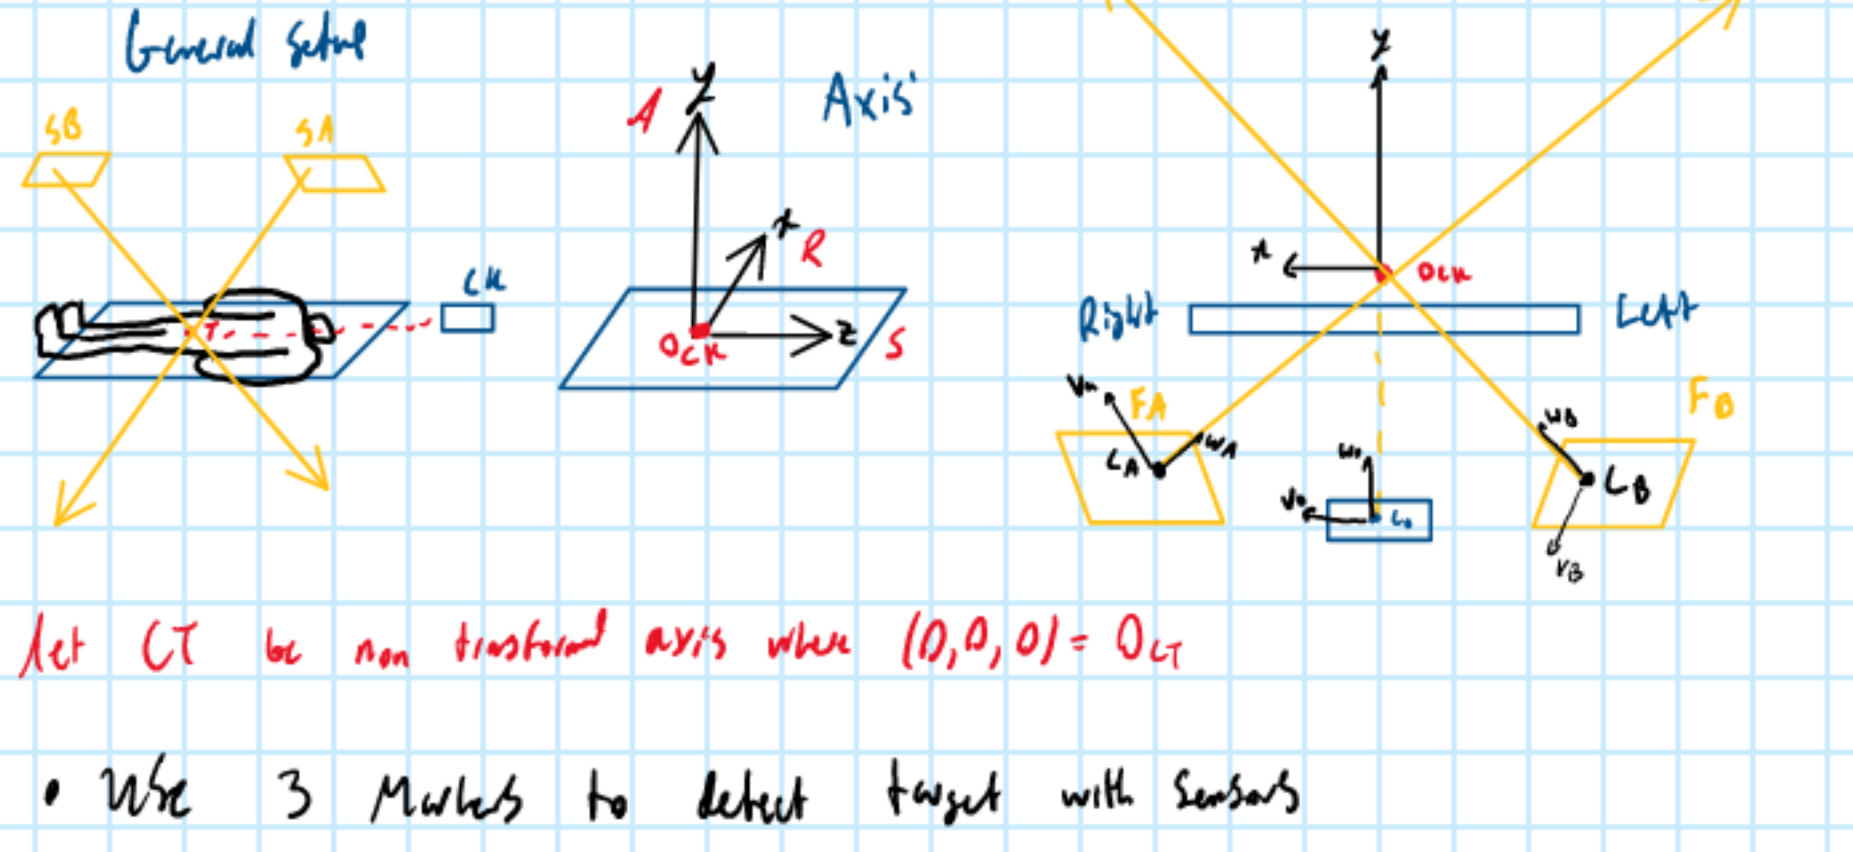 General Setup
SB
SA
CK
T
Axis
A
y
x
R
z
S
OCK
y
x
OCK
Right
Left
FA
LA
WA
FB
WB
LB
VB
let CT be non transformed axis where (0,0,0) = OCT
• Use 3 Markers to detect target with sensors